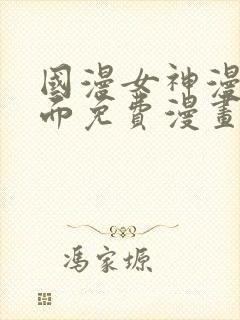 國漫女神漫
画免費漫畫
馮家塬